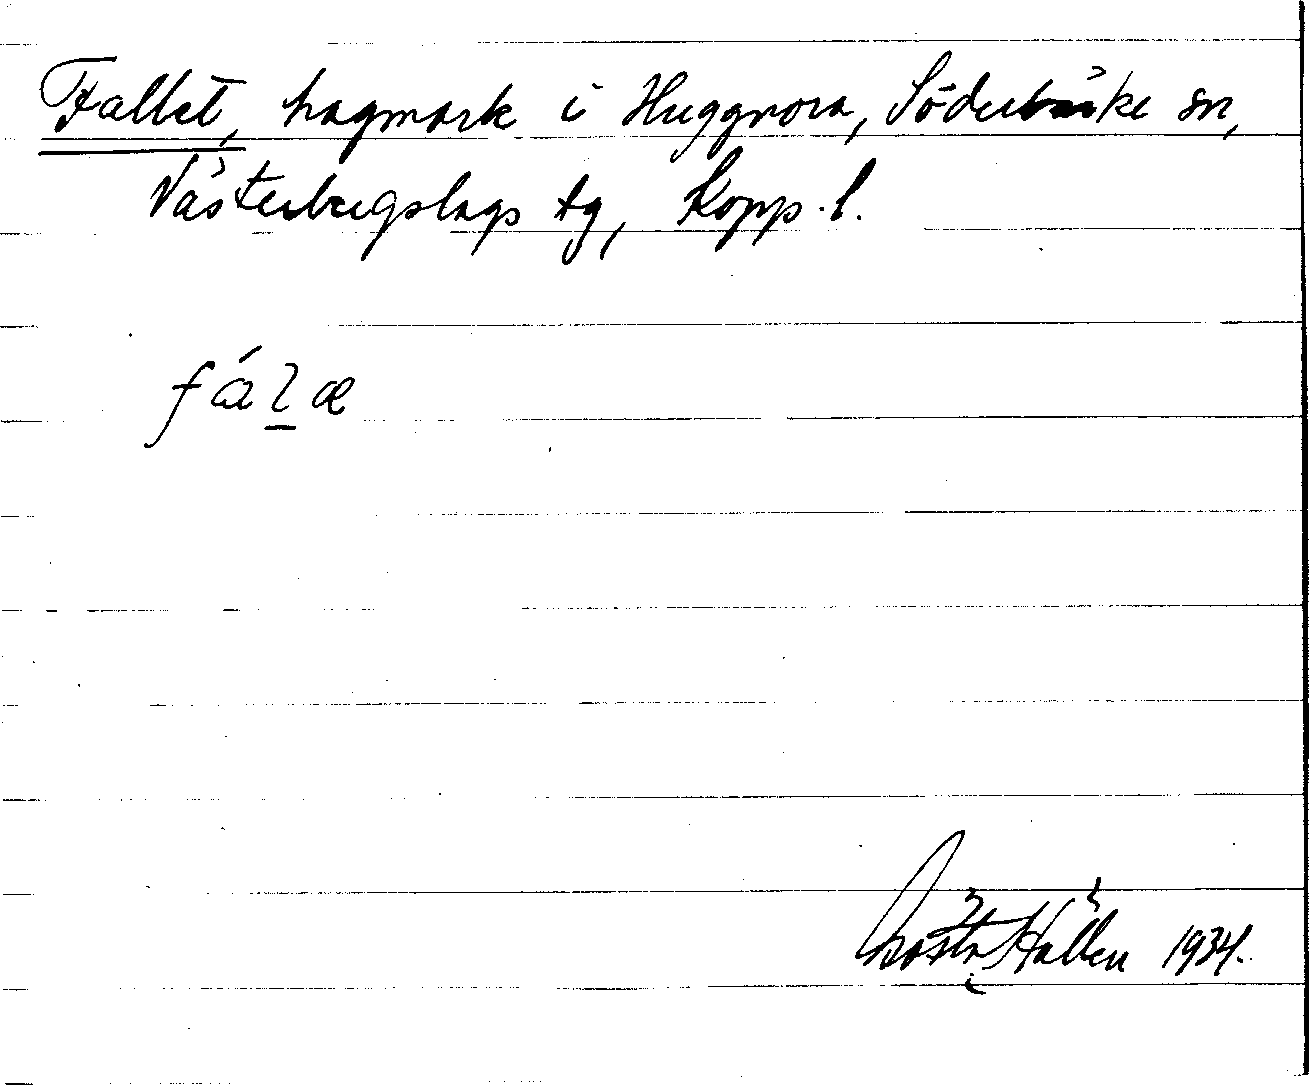 Fallet, hagmark i Huggnora, Söderbärke sn,
Västerbergslags tg, Kopp. l.
fá l̲æ
Gösta Hallén 1934.